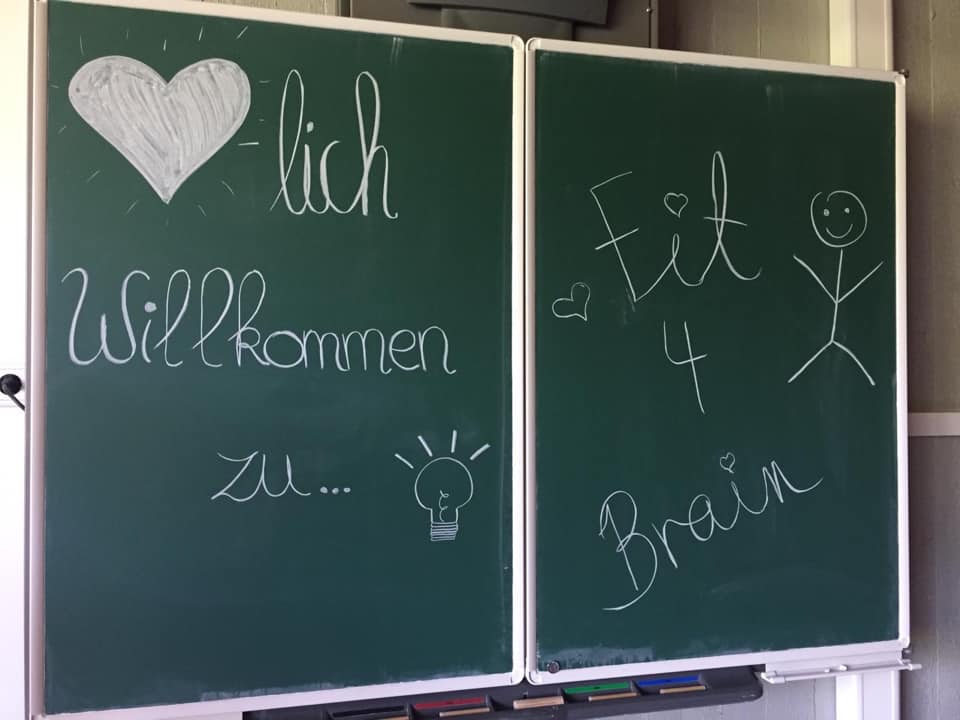 lich
Willkommen
zu...
Fit
4
Brain